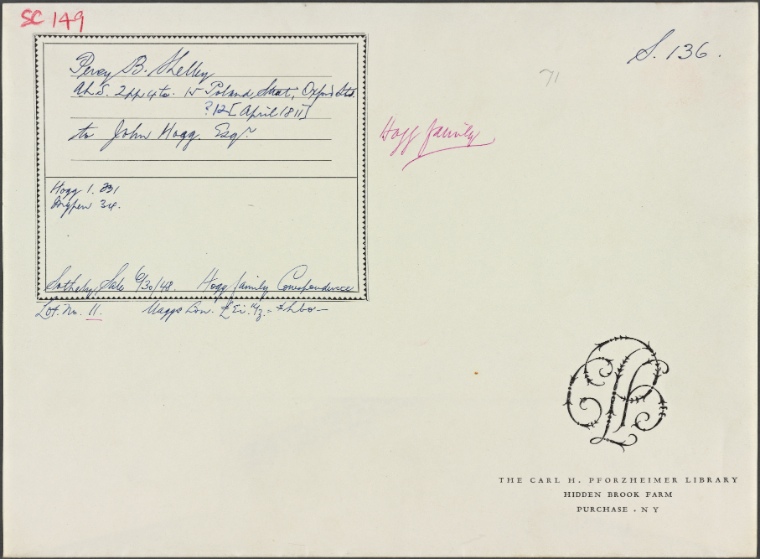 SC 149
S. 136.
71
Percy B. Shelley
A.L.S. 2pp 4to. 15 Poland Street, Oxford Str.
?12 [April 1811]
to John Hogg. Esqr
Hogg family
Hogg 1. 391
Ingpen 34.
Sotheby Sale 6/30/48. Hogg family Correspondence
Lot. No. 11. Maggs Com.
THE CARL H. PFORZHEIMER LIBRARY
HIDDEN BROOK FARM
PURCHASE . NY